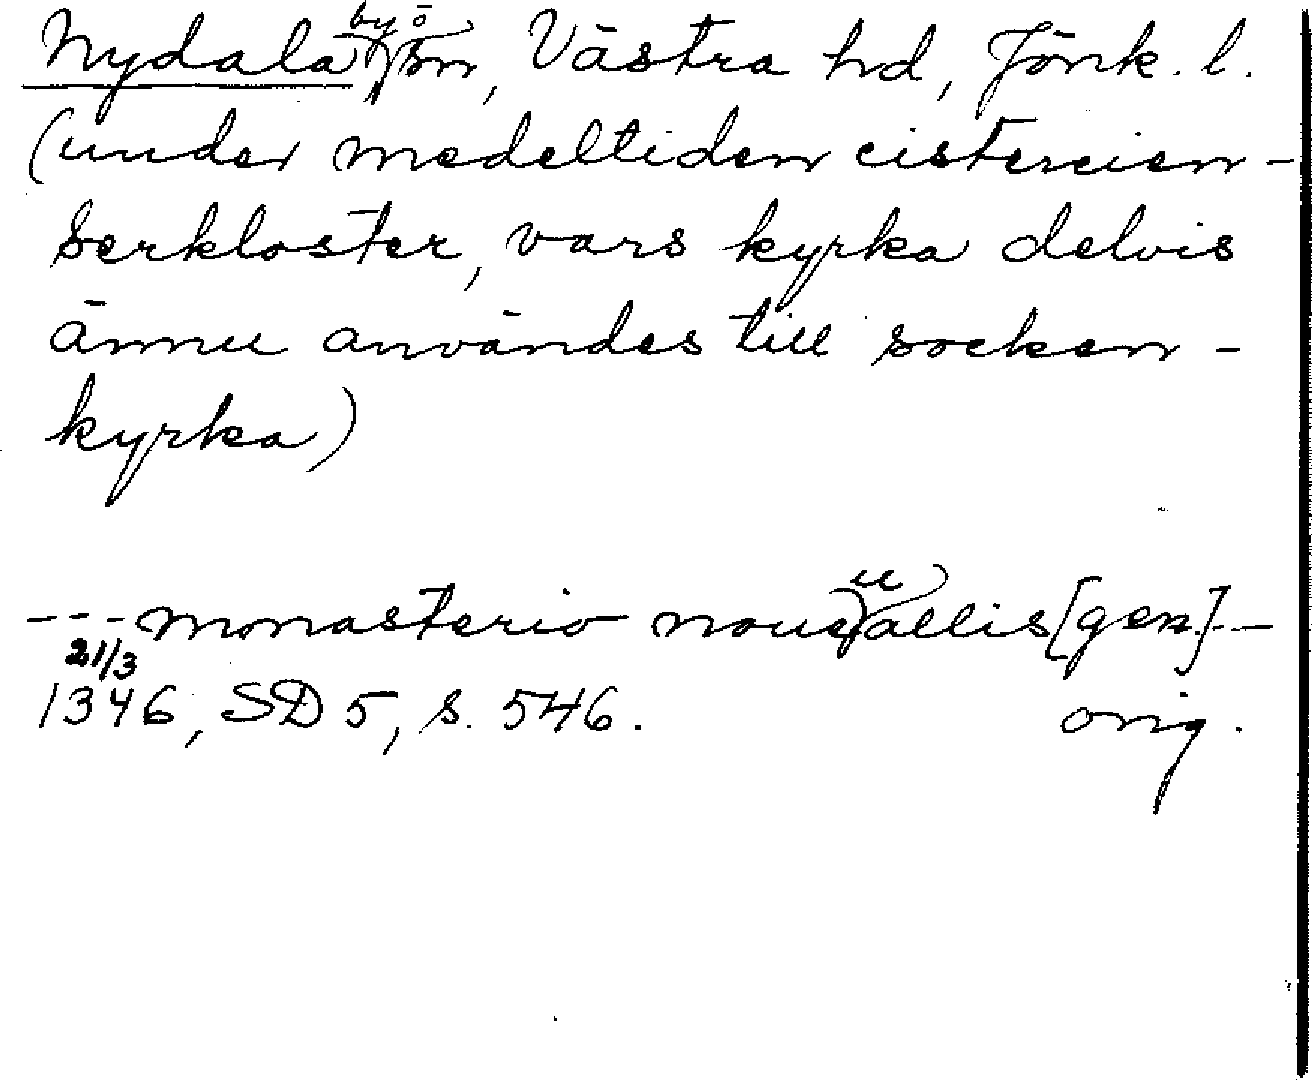 Nydala by o sn, Västra hd, Jönk. l.
(under medeltiden cistercien-
serkloster, vars kyrka delvis
ännu användes till socken-
kyrka)
--- monasterio noue uallis [gen] ---
21/3
1346, SD 5, s. 546. orig.